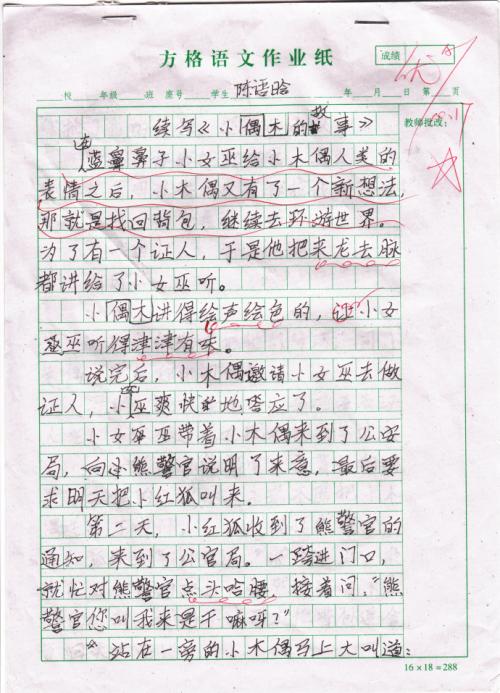 方格语文作业纸
成绩
优
校 年级 班 座号 学生 陈语晗 年 月 日 第 页
续写《小偶木的故事》
教师批改:
由蓝鼻鼻子小女巫给小木偶人类的
表情之后,小木偶又有了一个新想法,
那就是找回背包,继续去环游世界。
为了有一个证人,于是他把来龙去脉
都讲给了小女巫听。
小偶木讲得绘声绘色的,让小女
巫听得津津有味。
说完后,小木偶邀请小女巫去做
证人,小女巫爽快地答应了。
小女巫带着小木偶来到了公安
局,向小熊警官说明了来意,最后要
求明天把小红狐叫来。
第二天,小红狐收到了熊警官的
通知,来到了公官局。一跨进门口,
就忙对熊警官点头哈腰,接着问,“熊
警官您叫我来是干嘛呀?”
站在一旁的小木偶马上大叫道:
16×18=288